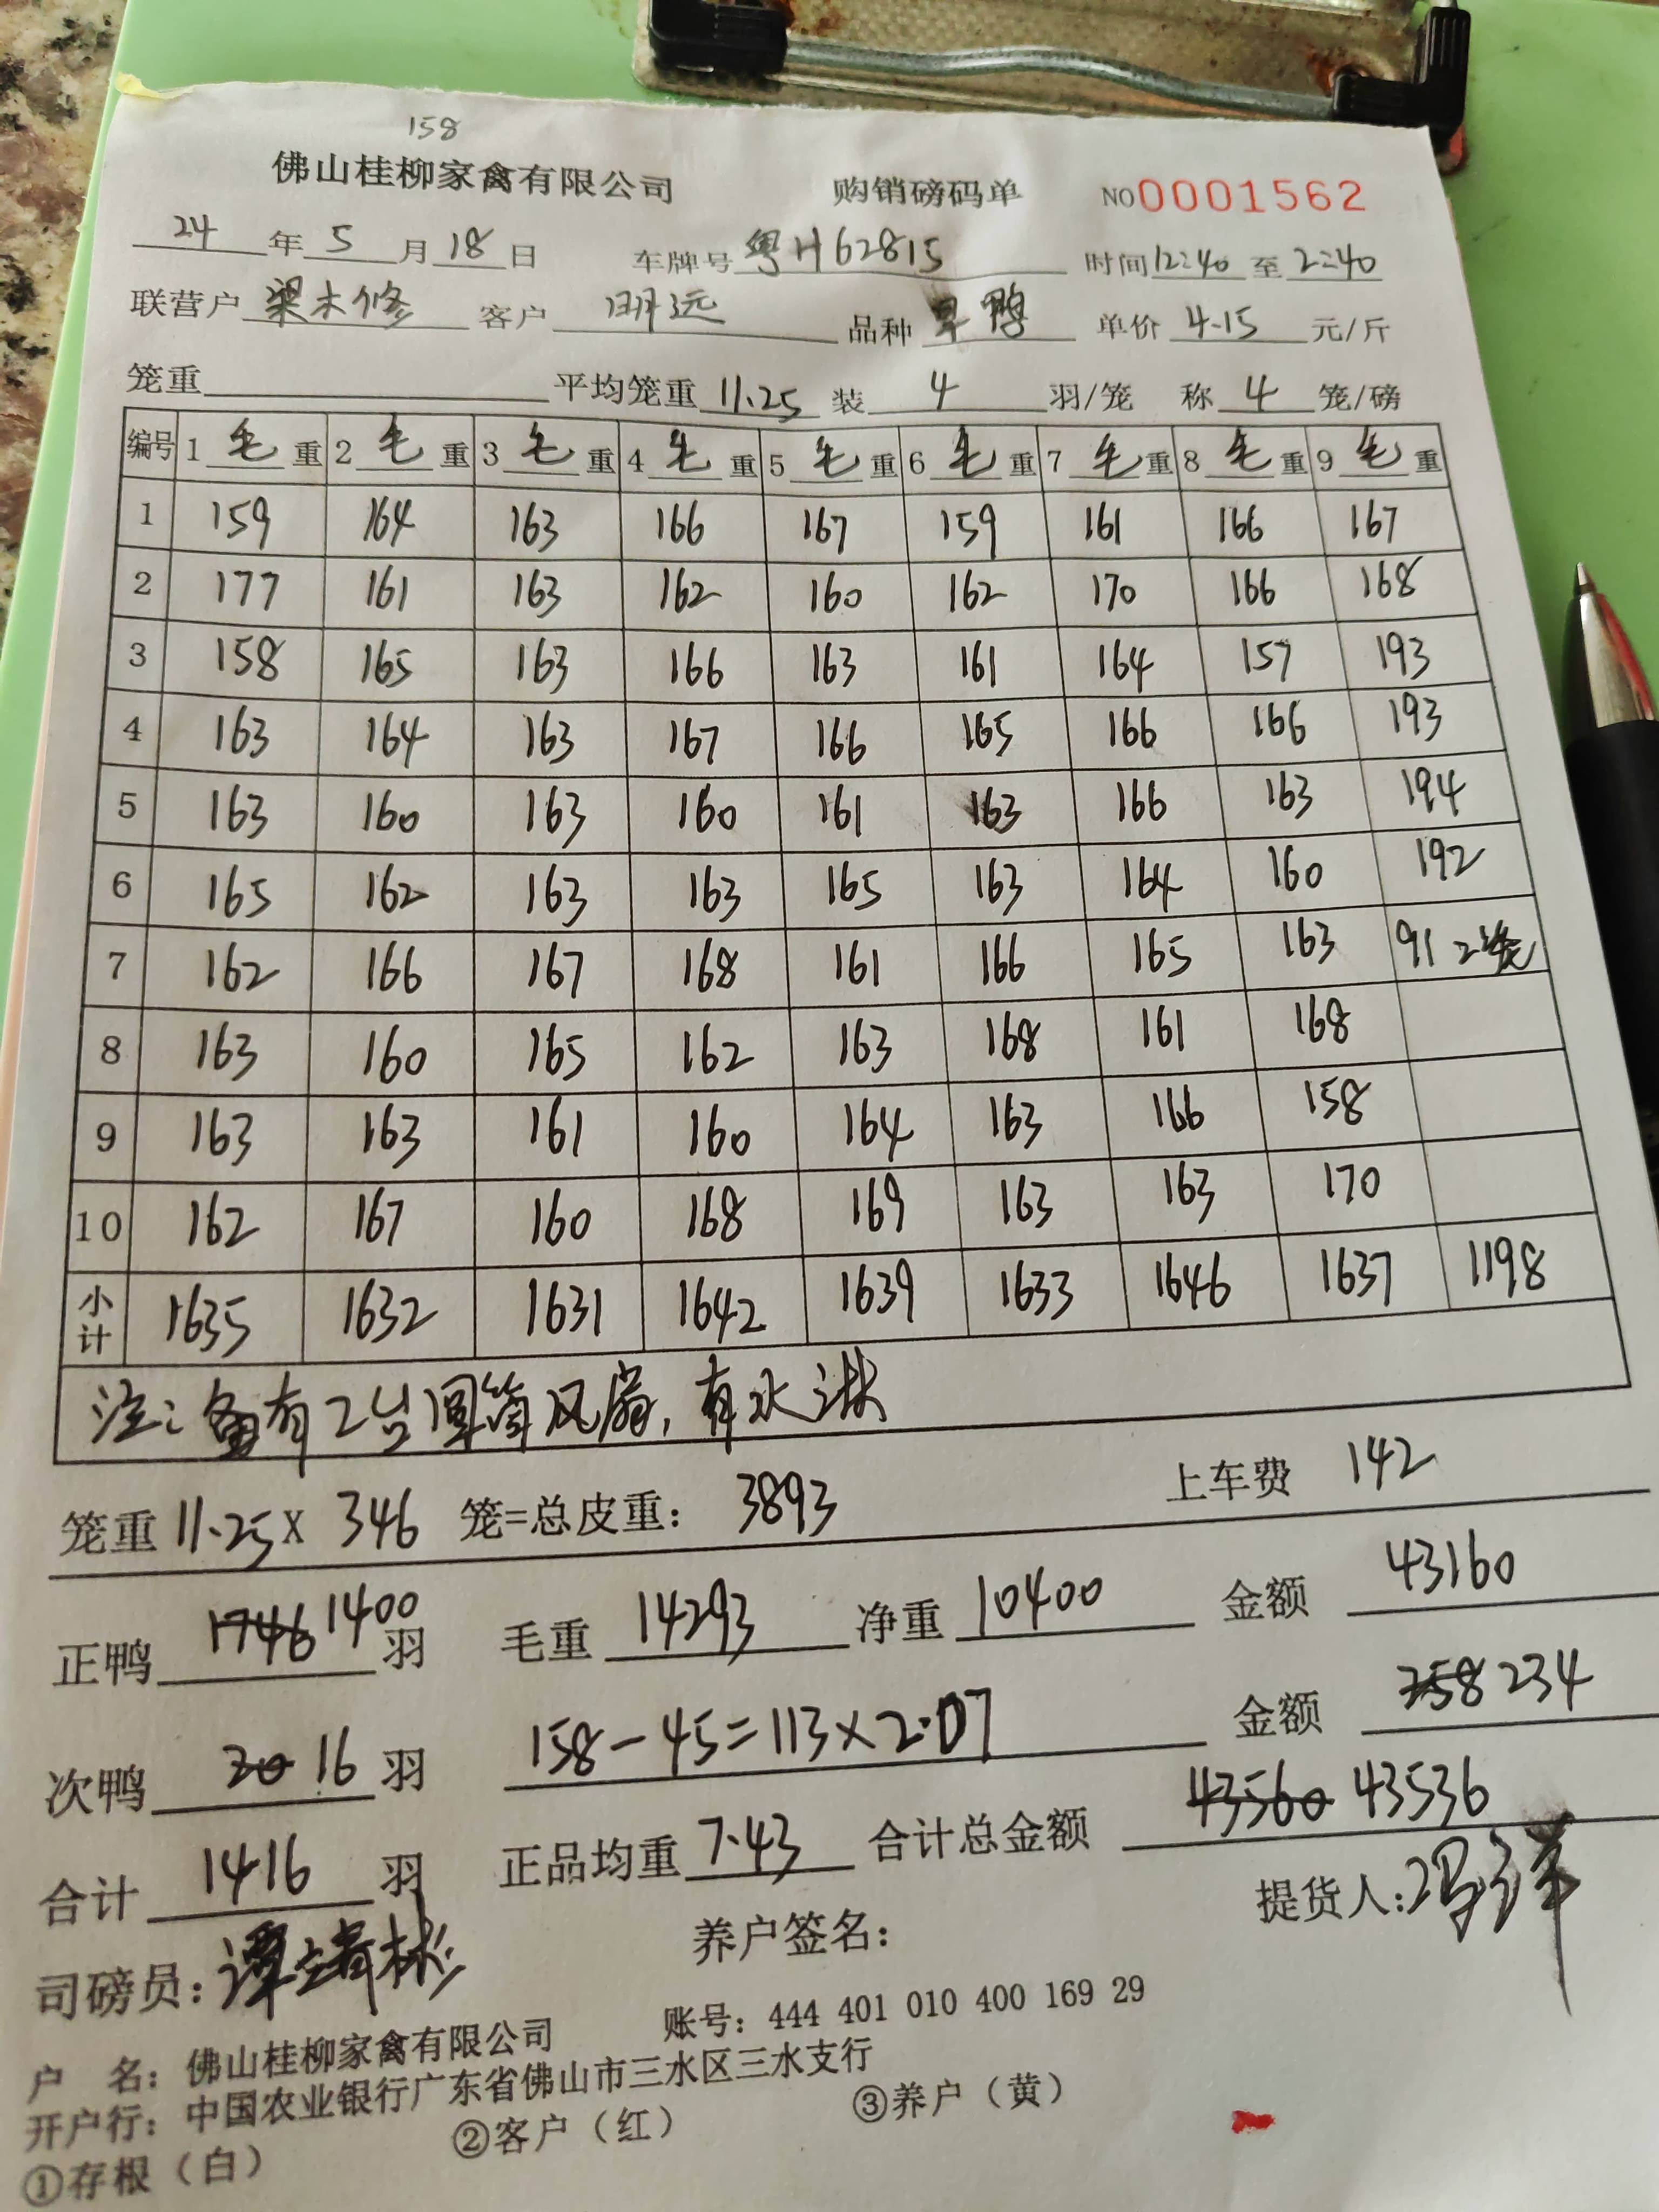 158
佛山桂柳家禽有限公司 购销磅码单 NO 0001562
24 年 5 月 18 日 车牌号 粤H62815 时间 12:40 至 2:40
联营户 梁木修 客户 明远 品种 旱鸭 单价 4.15 元/斤
笼重 平均笼重 11.25 装 4 羽/笼 称 4 笼/磅
编号 1 毛 重 2 毛 重 3 毛 重 4 毛 重 5 毛 重 6 毛 重 7 毛 重 8 毛 重 9 毛 重
1 159 164 163 166 167 159 161 166 167
2 177 161 163 162 160 162 170 166 168
3 158 165 163 166 163 161 164 157 193
4 163 164 163 167 166 165 166 166 193
5 163 160 163 160 161 163 166 163 194
6 165 162 163 163 165 163 164 160 192
7 162 166 167 168 161 166 165 163 91 2笼
8 163 160 165 162 163 168 161 168
9 163 163 161 160 164 163 166 158
10 162 167 160 168 169 163 163 170
小计 1635 1632 1631 1642 1639 1633 1646 1637 1198
注:备有2台圆筒风扇,有水淋
笼重 11.25 X 346 笼=总皮重: 3893 上车费 142
正鸭 1746 1400 羽 毛重 14293 净重 10400 金额 43160
次鸭 20 16 羽 158-45=113×2.07 金额 258 234
合计 1416 羽 正品均重 7.43 合计总金额 43560 43536
司磅员: 养户签名: 提货人:
户 名: 佛山桂柳家禽有限公司 账号: 444 401 010 400 169 29
开户行: 中国农业银行广东省佛山市三水区三水支行
①存根(白) ②客户(红) ③养户(黄)